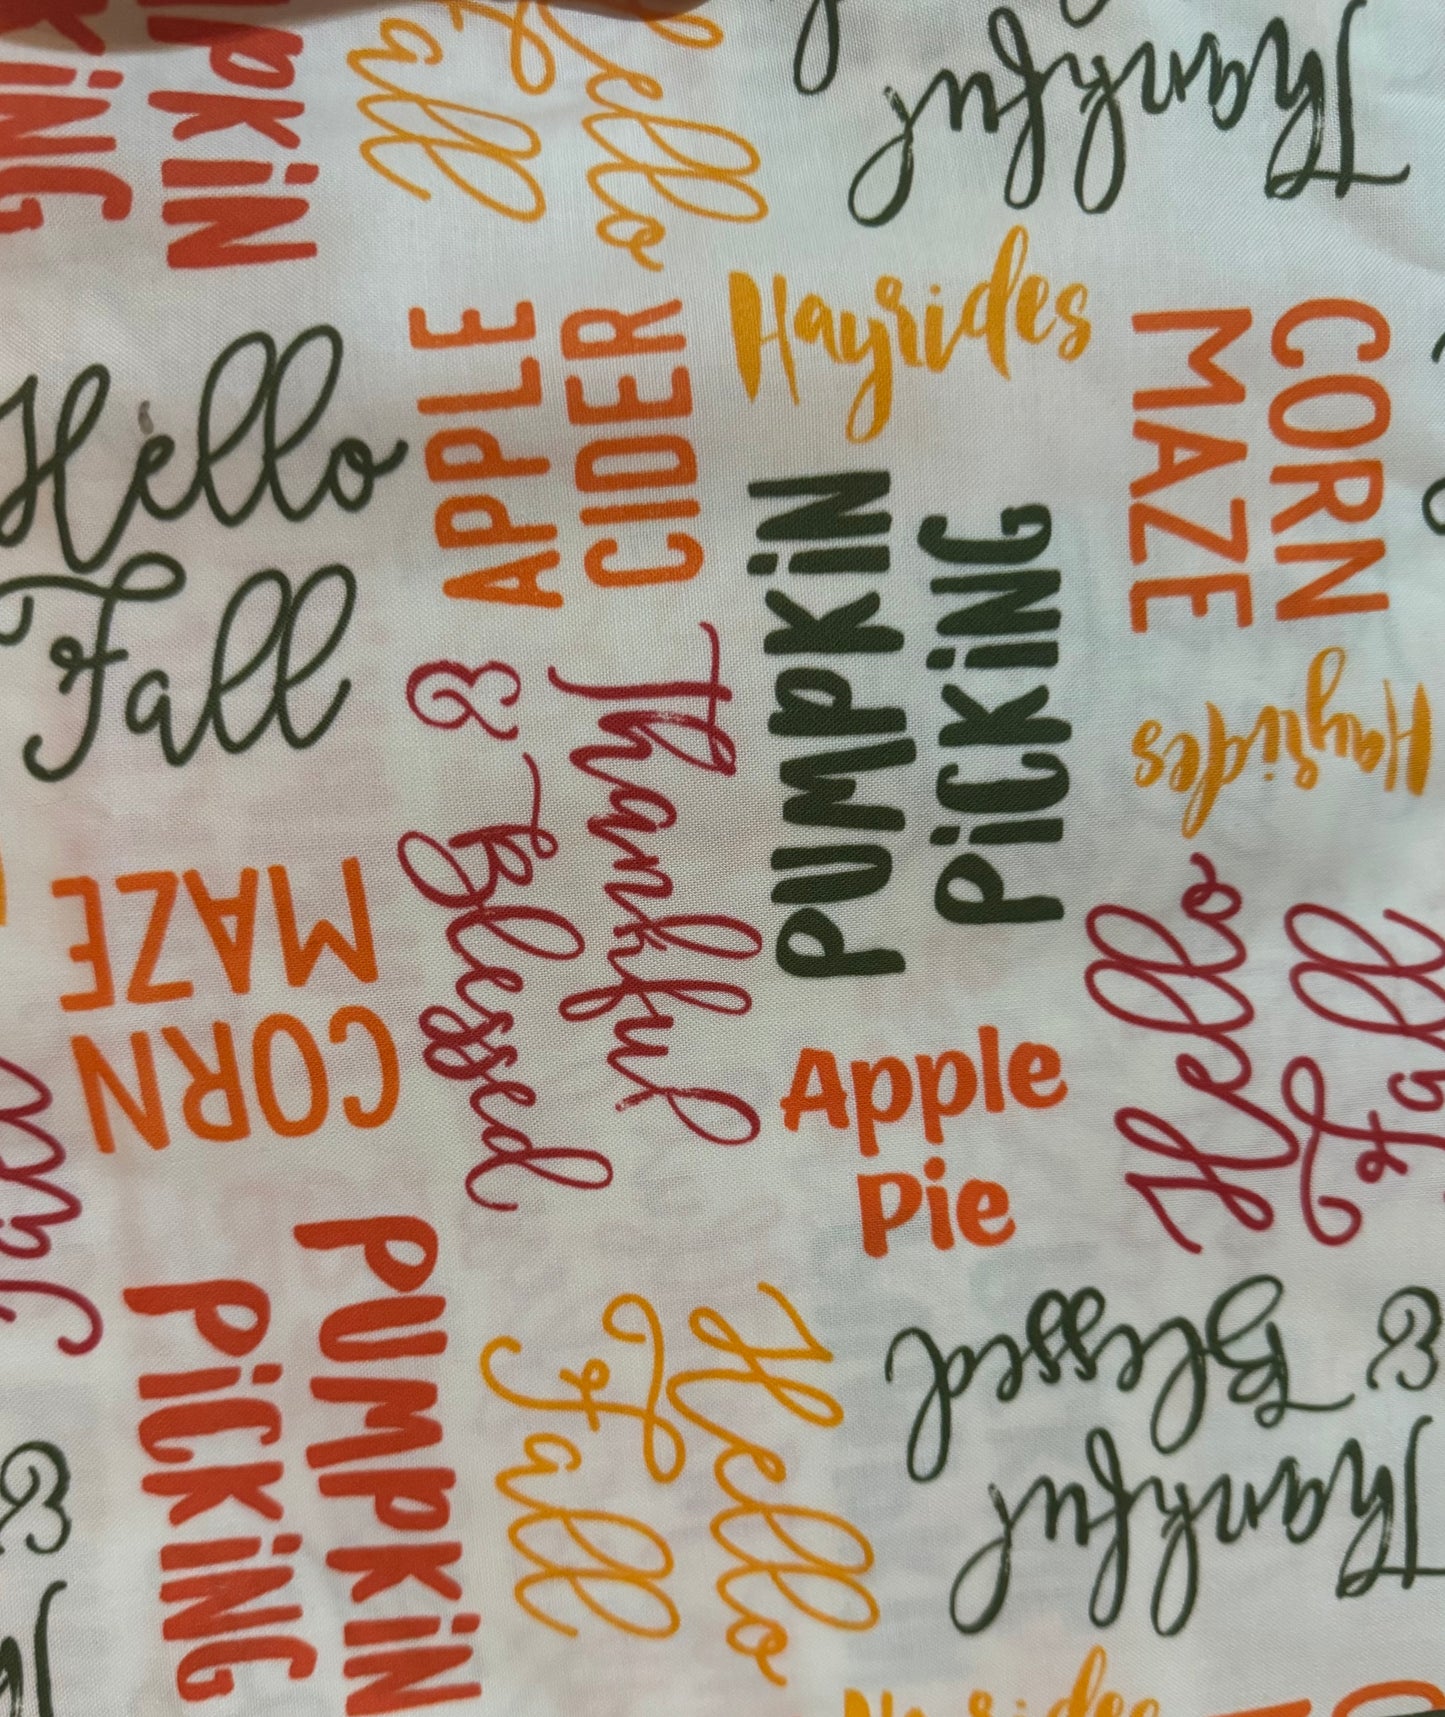 PUMPKIN
PICKING
Hello
Fall
Thankful
Hayrides
APPLE
CIDER
CORN
MAZE
Hello
Fall
Thankful
& Blessed
PUMPKIN
PICKING
Hayrides
CORN
MAZE
Apple
Pie
Hello
Fall
Fall
&
PUMPKIN
PICKING
Hello
Fall
Thankful
& Blessed
Hayrides